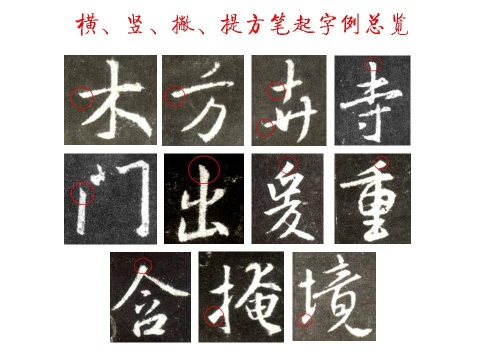 横、竖、撇、提方笔起字例总览
木方卉寺
门出爰重
含掩境